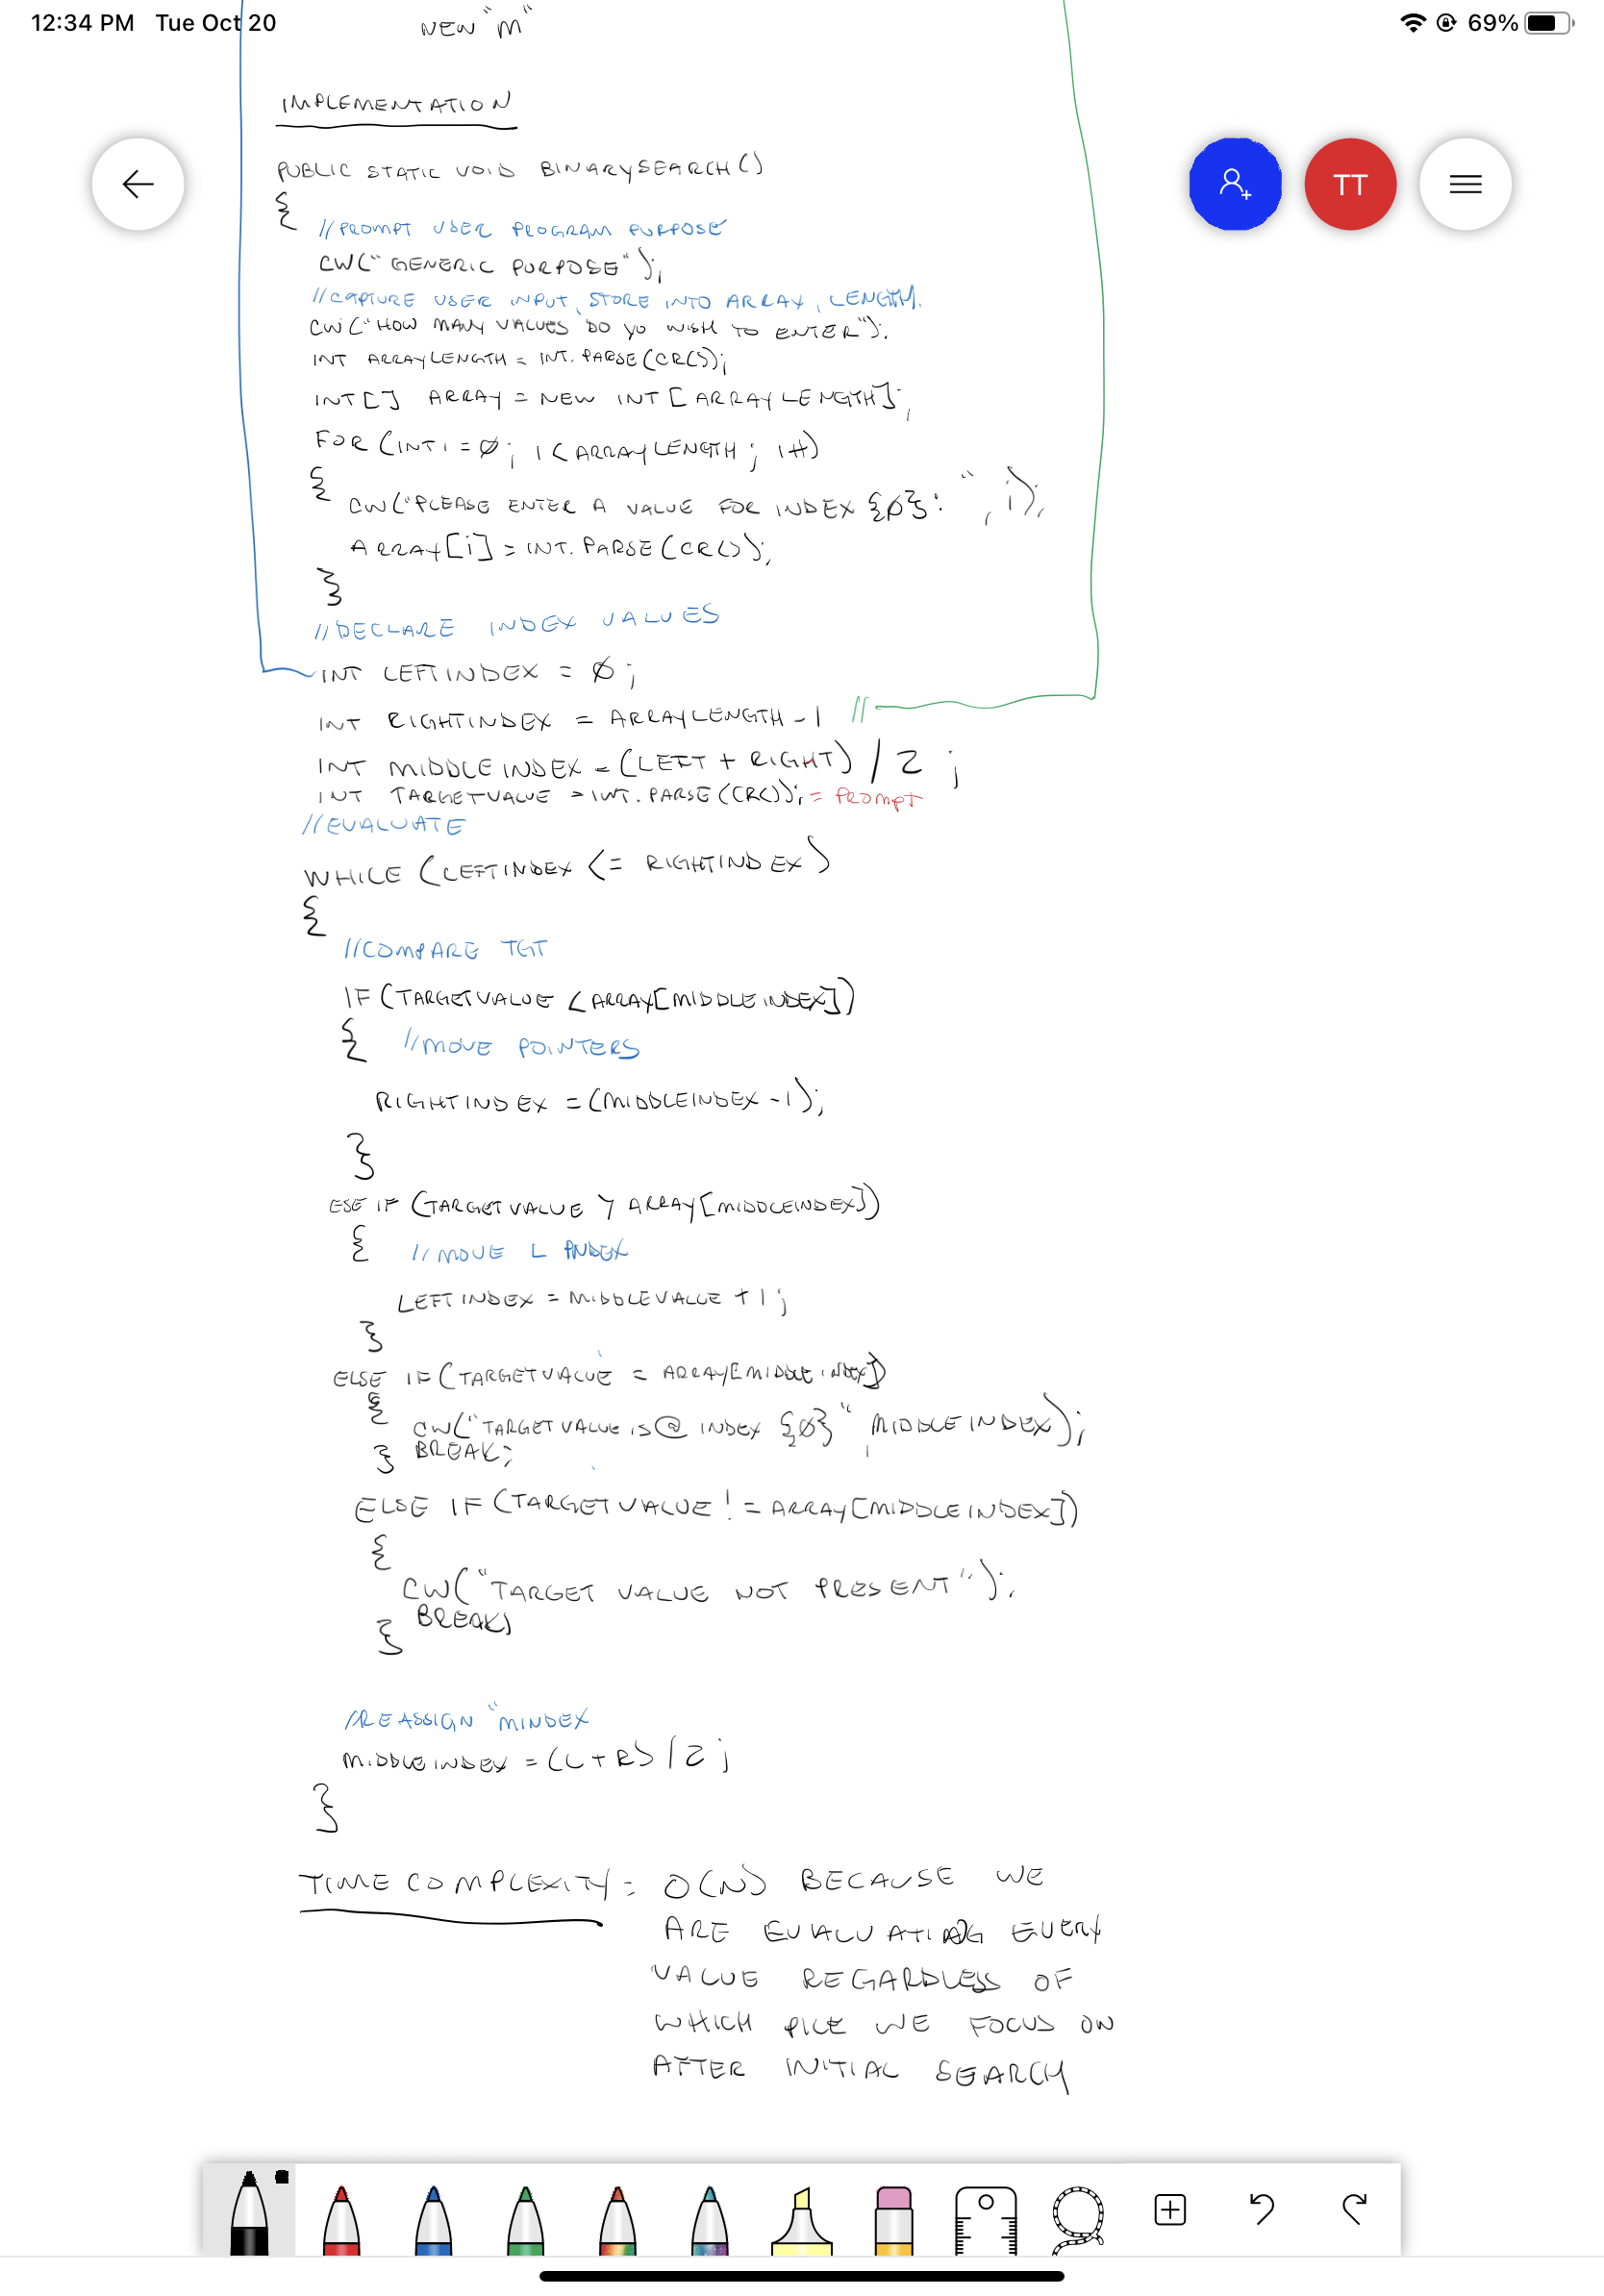 12:34 PM Tue Oct 20
69%
NEW "M"
IMPLEMENTATION
TT
PUBLIC STATIC VOID BINARYSEARCH()
{
//PROMPT USER PROGRAM PURPOSE
CW("GENERIC PURPOSE");
//CAPTURE USER INPUT, STORE INTO ARRAY, LENGTH.
CW("HOW MANY VALUES DO YO WISH TO ENTER");
INT ARRAYLENGTH = INT.PARSE(CR());
INT[] ARRAY = NEW INT[ARRAYLENGTH];
FOR (INT I = 0; I < ARRAYLENGTH; I++)
{
CW("PLEASE ENTER A VALUE FOR INDEX {0}: ", i);
ARRAY[i] = INT.PARSE(CR());
}
//DECLARE INDEX VALUES
INT LEFTINDEX = 0;
INT RIGHTINDEX = ARRAYLENGTH - 1 //
INT MIDDLEINDEX = (LEFT + RIGHT) / 2 ;
INT TARGETVALUE = INT.PARSE(CR()); = PROMPT
//EVALUATE
WHILE (LEFTINDEX <= RIGHTINDEX)
{
//COMPARE TGT
IF (TARGETVALUE < ARRAY[MIDDLEINDEX])
{ //MOVE POINTERS
RIGHTINDEX = (MIDDLEINDEX - 1);
}
ESE IF (TARGETVALUE > ARRAY[MIDDLEINDEX])
{ //MOVE L INDEX
LEFTINDEX = MIDDLEVALUE + 1;
}
ELSE IF (TARGETVALUE = ARRAY[MIDDLEINDEX])
{
CW("TARGETVALUE IS @ INDEX {0}", MIDDLEINDEX);
} BREAK;
ELSE IF (TARGETVALUE != ARRAY[MIDDLEINDEX])
{
CW("TARGET VALUE NOT PRESENT");
BREAK;
}
/REASSIGN "MINDEX
MIDDLEINDEX = (L + R) / 2 ;
}
TIME COMPLEXITY: O(N) BECAUSE WE
ARE EVALUATING EVERY
VALUE REGARDLESS OF
WHICH PICE WE FOCUS ON
AFTER INITIAL SEARCH